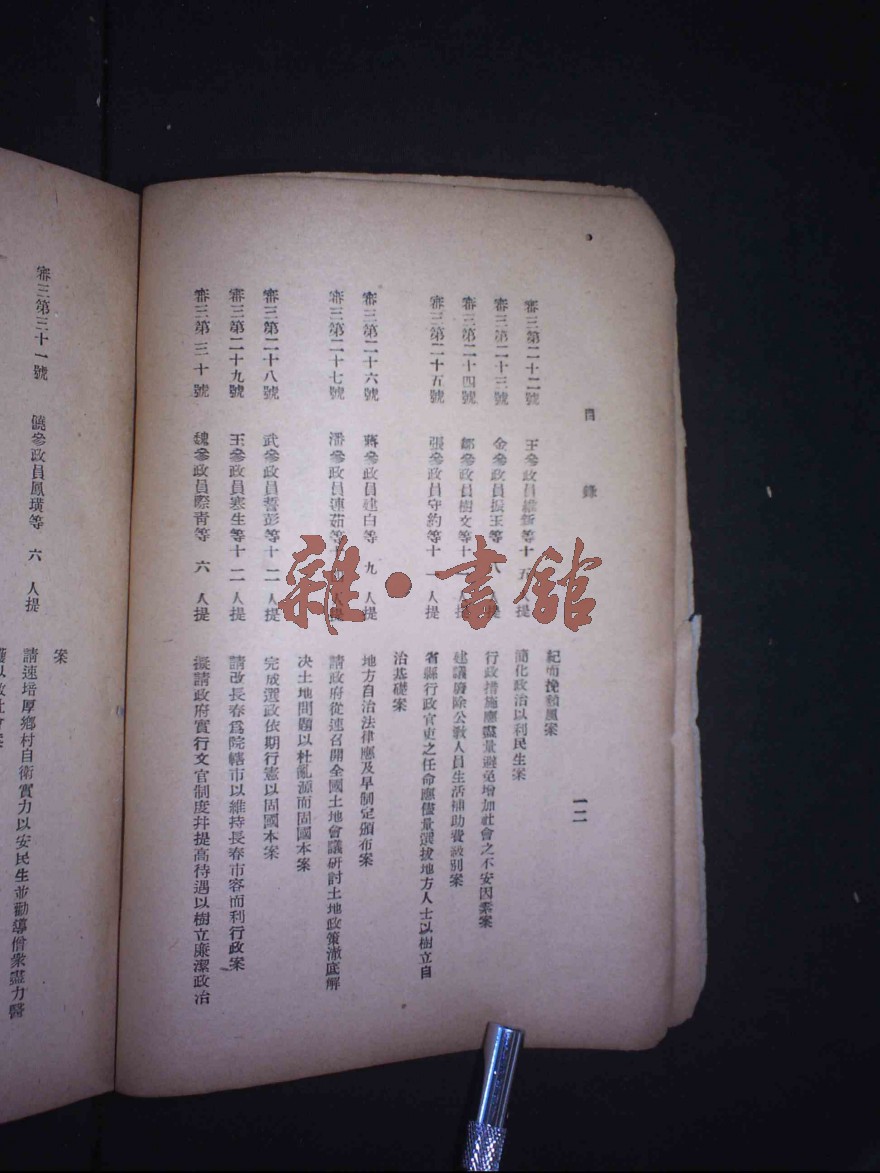 目錄
一二
紀而挽頹風案
審三第二十二號 王參政員維新等十五 提
簡化政治以利民生案
審三第二十三號 金參政員振玉等 八 提
行政措施應盡量避免增加社會之不安因素案
審三第二十四號 參政員樹文等十 人提
建議廢除公教人員生活補助費 別案
審三第二十五號 張參政員守約等十一人提
省縣行政官吏之任命應儘量選拔地方人士以樹立自
治基礎案
審三第二十六號 蔣參政員建白等 九 人提
地方自治法律應及早制定頒布案
審三第二十七號 潘參政員連茹等十 提
請政府從速召開全國土地會議研討土地政策澈底解
決土地問題以杜亂源而固國本案
審三第二十八號 武參政員誓彭等十二人提
完成選政依期行憲以固國本案
審三第二十九號 王參政員寒生等十二人提
請改長春爲院轄市以維持長春市容而利行政案
審三第三十號 魏參政員際青等 六 人提
擬請政府實行文官制度并提高待遇以樹立廉潔政治
案
審三第三十一號 饒參政員鳳璜等 六 人提
請速培厚鄉村自衛實力以安民生並勸導僧衆盡力醫
雜·書館